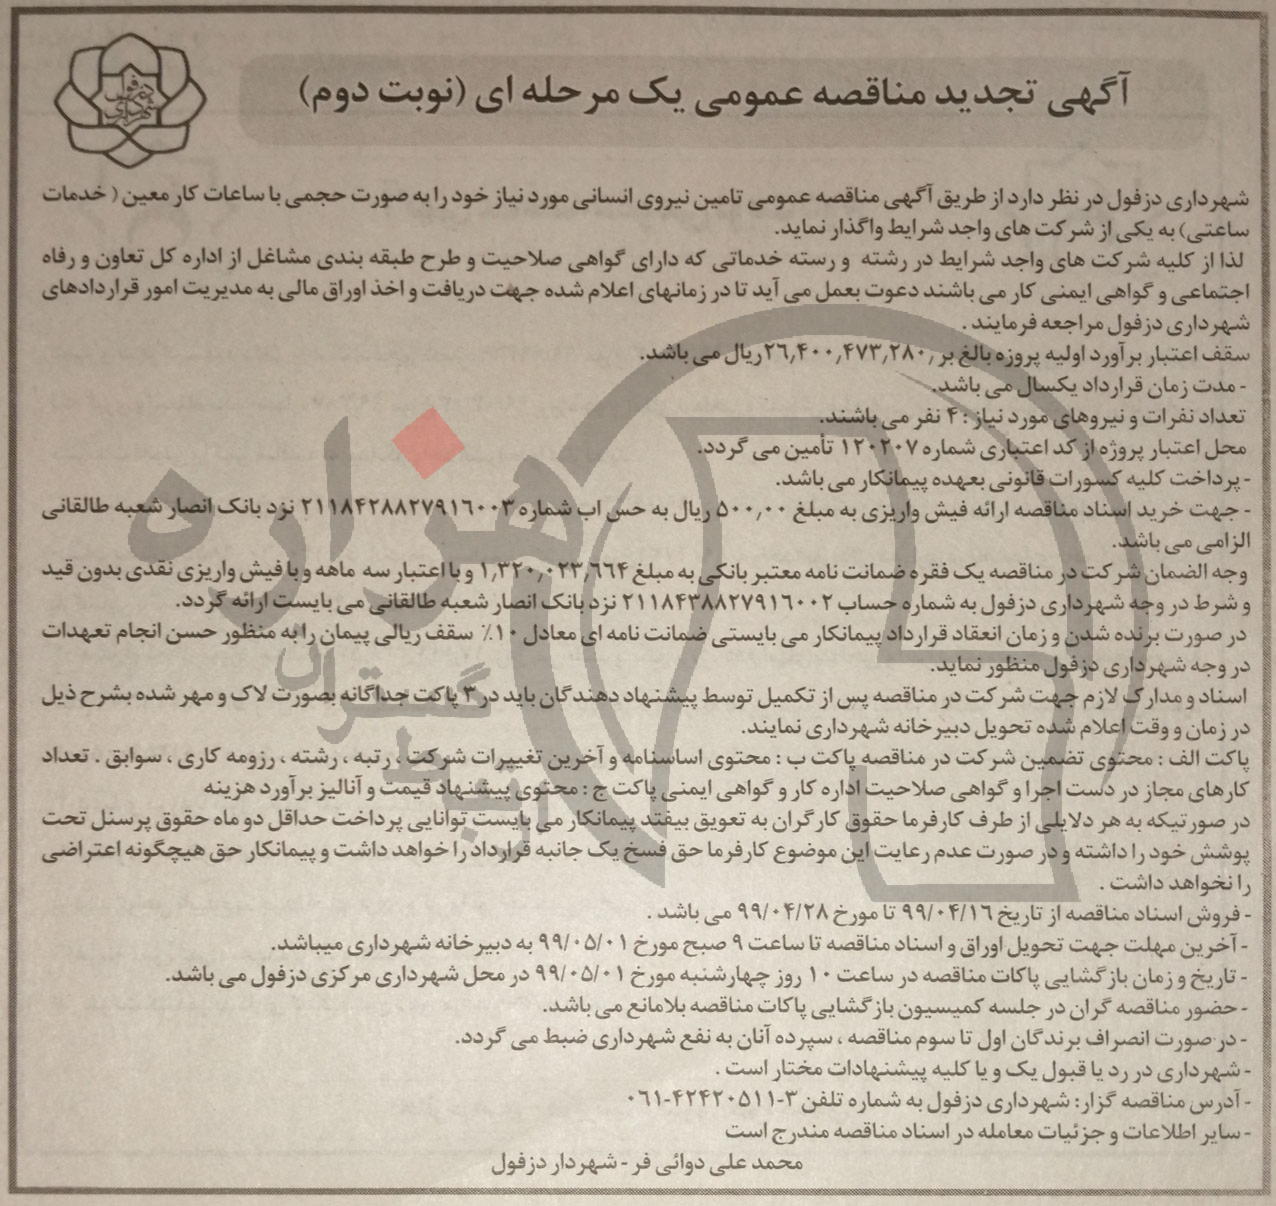 آگهی تجدید مناقصه عمومی یک مرحله ای (نوبت دوم)
شهرداری دزفول در نظر دارد از طریق آگهی مناقصه عمومی تامین نیروی انسانی مورد نیاز خود را به صورت حجمی با ساعات کار معین ( خدمات
ساعتی) به یکی از شرکت های واجد شرایط واگذار نماید.
لذا از کلیه شرکت های واجد شرایط در رشته و رسته خدماتی که دارای گواهی صلاحیت و طرح طبقه بندی مشاغل از اداره کل تعاون و رفاه
اجتماعی و گواهی ایمنی کار می باشند دعوت بعمل می آید تا در زمانهای اعلام شده جهت دریافت و اخذ اوراق مالی به مدیریت امور قراردادهای
شهرداری دزفول مراجعه فرمایند .
سقف اعتبار برآورد اولیه پروژه بالغ بر ۲۶,۴۰۰,۴۷۳,۲۸۰,ریال می باشد.
- مدت زمان قرارداد یکسال می باشد.
تعداد نفرات و نیروهای مورد نیاز : ۴ نفر می باشند.
محل اعتبار پروژه از کد اعتباری شماره ۱۲۰۲۰۷ تأمین می گردد.
- پرداخت کلیه کسورات قانونی بعهده پیمانکار می باشد.
- جهت خرید اسناد مناقصه ارائه فیش واریزی به مبلغ ۵۰۰,۰۰ ریال به حس اب شماره ۲۱۱۸۴۲۸۸۲۷۹۱۶۰۰۳ نزد بانک انصار شعبه طالقانی
الزامی می باشد.
وجه الضمان شرکت در مناقصه یک فقره ضمانت نامه معتبر بانکی به مبلغ ۱,۳۲۰,۰۲۳,۶۶۴ و با اعتبار سه ماهه و یا فیش واریزی نقدی بدون قید
و شرط در وجه شهرداری دزفول به شماره حساب ۲۱۱۸۴۳۸۸۲۷۹۱۶۰۰۲ نزد بانک انصار شعبه طالقانی می بایست ارائه گردد.
در صورت برنده شدن و زمان انعقاد قرارداد پیمانکار می بایستی ضمانت نامه ای معادل ۱۰٪ سقف ریالی پیمان را به منظور حسن انجام تعهدات
در وجه شهرداری دزفول منظور نماید.
اسناد و مدارک لازم جهت شرکت در مناقصه پس از تکمیل توسط پیشنهاد دهندگان باید در ۳ پاکت جداگانه بصورت لاک و مهر شده بشرح ذیل
در زمان و وقت اعلام شده تحویل دبیرخانه شهرداری نمایند.
پاکت الف : محتوی تضمین شرکت در مناقصه پاکت ب : محتوی اساسنامه و آخرین تغییرات شرکت ، رتبه ، رشته ، رزومه کاری ، سوابق . تعداد
کارهای مجاز در دست اجرا و گواهی صلاحیت اداره کار و گواهی ایمنی پاکت ج : محتوی پیشنهاد قیمت و آنالیز برآورد هزینه
در صورتیکه به هر دلایلی از طرف کارفرما حقوق کارگران به تعویق بیفتد پیمانکار می بایست توانایی پرداخت حداقل دو ماه حقوق پرسنل تحت
پوشش خود را داشته و در صورت عدم رعایت این موضوع کارفرما حق فسخ یک جانبه قرارداد را خواهد داشت و پیمانکار حق هیچگونه اعتراضی
را نخواهد داشت .
- فروش اسناد مناقصه از تاریخ ۹۹/۰۴/۱۶ تا مورخ ۹۹/۰۴/۲۸ می باشد .
- آخرین مهلت جهت تحویل اوراق و اسناد مناقصه تا ساعت ۹ صبح مورخ ۹۹/۰۵/۰۱ به دبیرخانه شهرداری میباشد.
- تاریخ و زمان بازگشایی پاکات مناقصه در ساعت ۱۰ روز چهارشنبه مورخ ۹۹/۰۵/۰۱ در محل شهرداری مرکزی دزفول می باشد.
- حضور مناقصه گران در جلسه کمیسیون بازگشایی پاکات مناقصه بلامانع می باشد.
- در صورت انصراف برندگان اول تا سوم مناقصه ، سپرده آنان به نفع شهرداری ضبط می گردد.
- شهرداری در رد یا قبول یک و یا کلیه پیشنهادات مختار است .
- آدرس مناقصه گزار: شهرداری دزفول به شماره تلفن ۳-۰۶۱-۴۲۴۲۰۵۱۱
- سایر اطلاعات و جزئیات معامله در اسناد مناقصه مندرج است
محمد علی دوائی فر - شهردار دزفول
هزاره